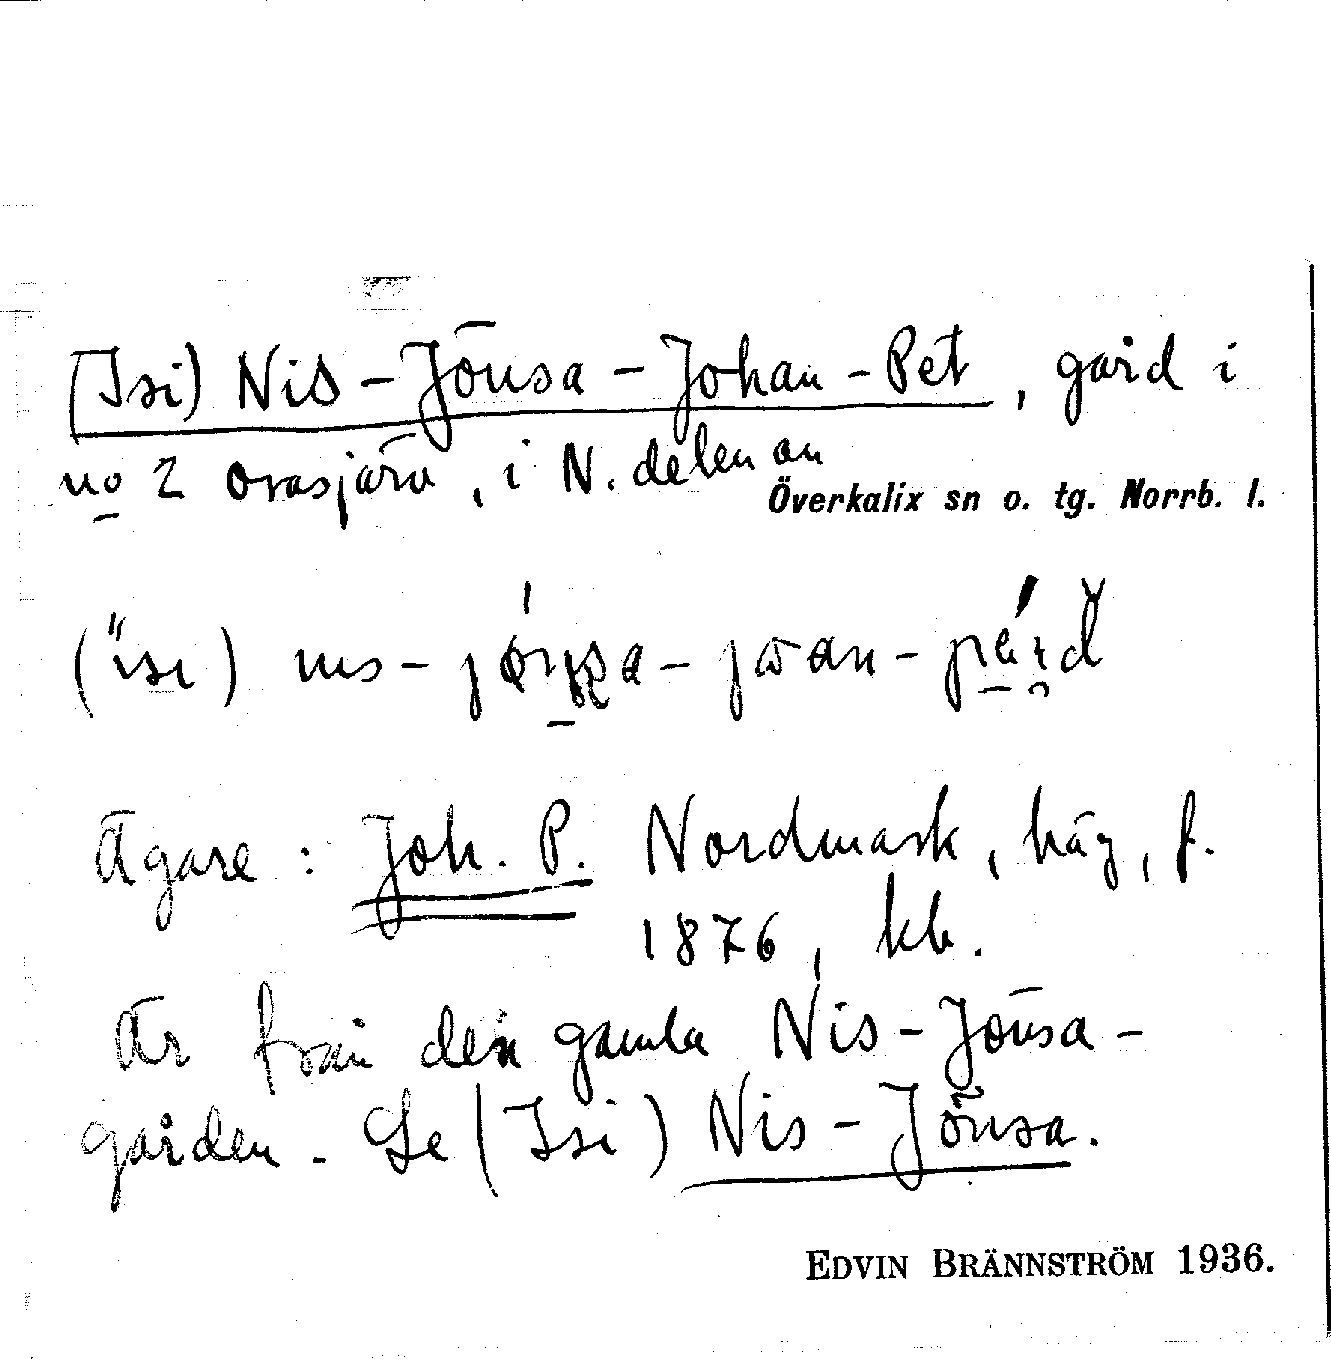 (Isi) Nis-Jönsa-Johan-Pet, gård i
no 2 Orasjärv, i N. delen av
Överkalix sn o. tg. Norrb. l.
Ägare: Joh. P. Nordmark, häg, f.
1876, kb.
Är från den gamla Nis-Jönsa-
gården. Se (Isi) Nis-Jönsa.
EDVIN BRÄNNSTRÖM 1936.